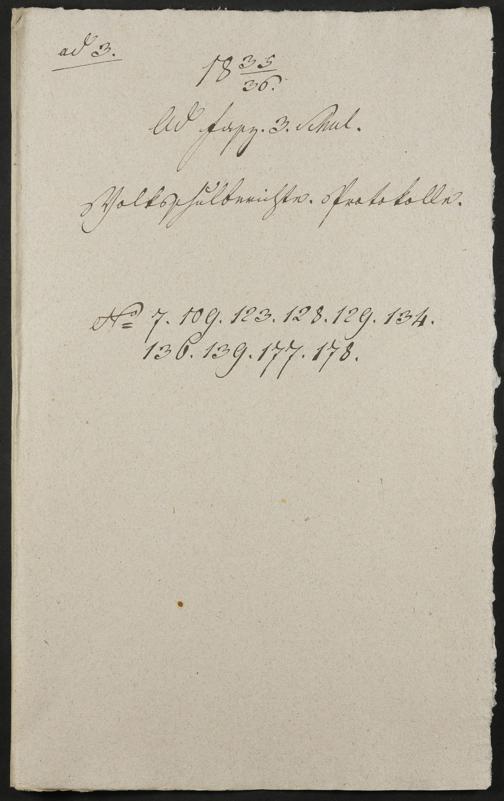 ad 3.
18 35/36.
Ad Fasz. 3. Schul.
Volksschulberichte. Protokolle.
No 7. 109. 123. 128. 129. 134.
136. 139. 177. 178.